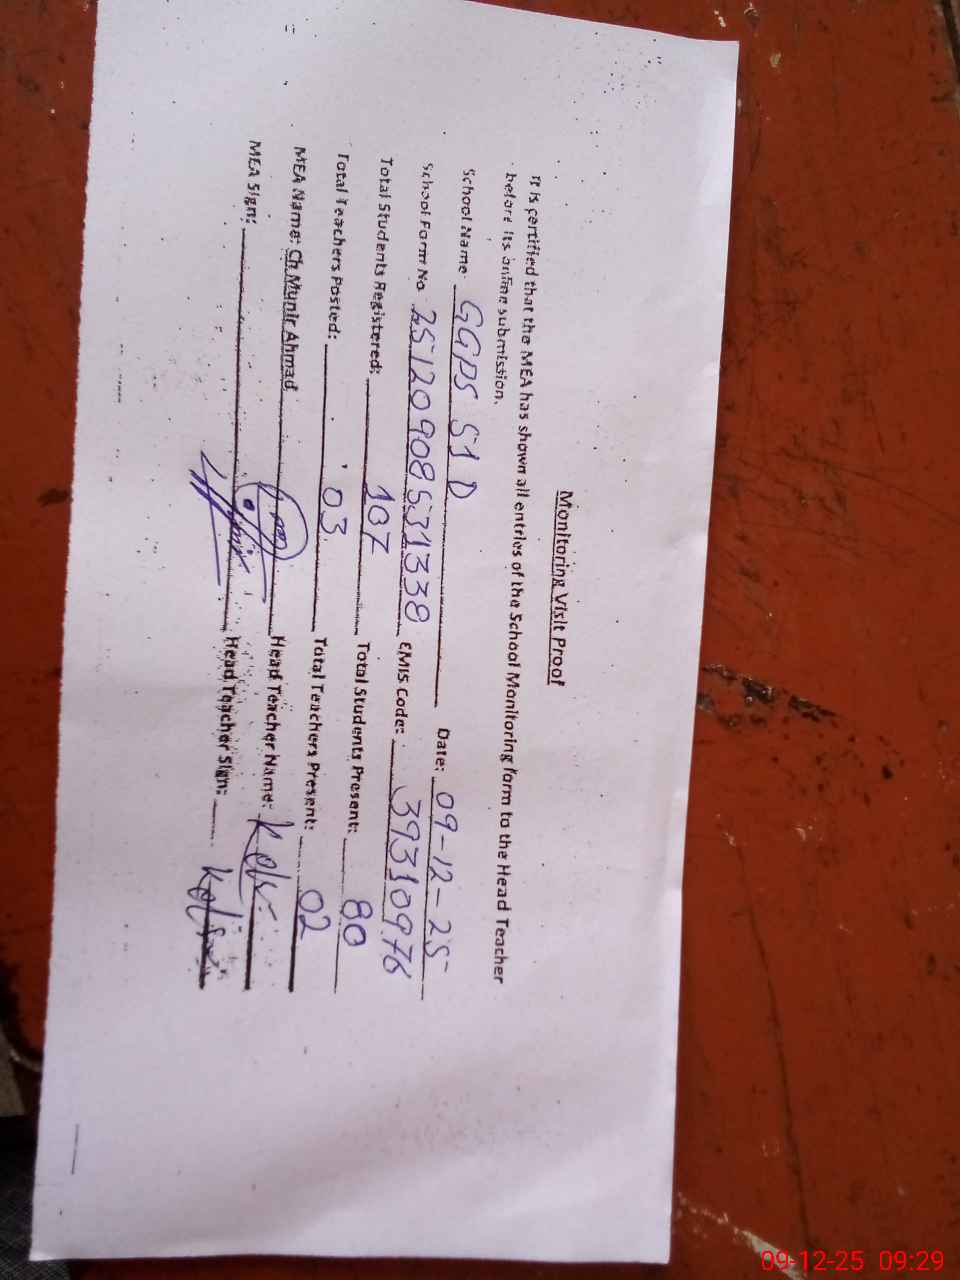 Monitoring Visit Proof
It is certified that the MEA has shown all entries of the School Monitoring form to the Head Teacher
before its online submission.
School Name: GGPS 51 D Date: 09-12-25
School Form No 25120908531338 EMIS Code: 39310976
Total Students Registered: 107 Total Students Present: 80
Total Teachers Posted: 03 Total Teachers Present: 02
MEA Name: Ch Munir Ahmad Head Teacher Name:
MEA Sign: Head Teacher Sign:
09-12-25 09:29